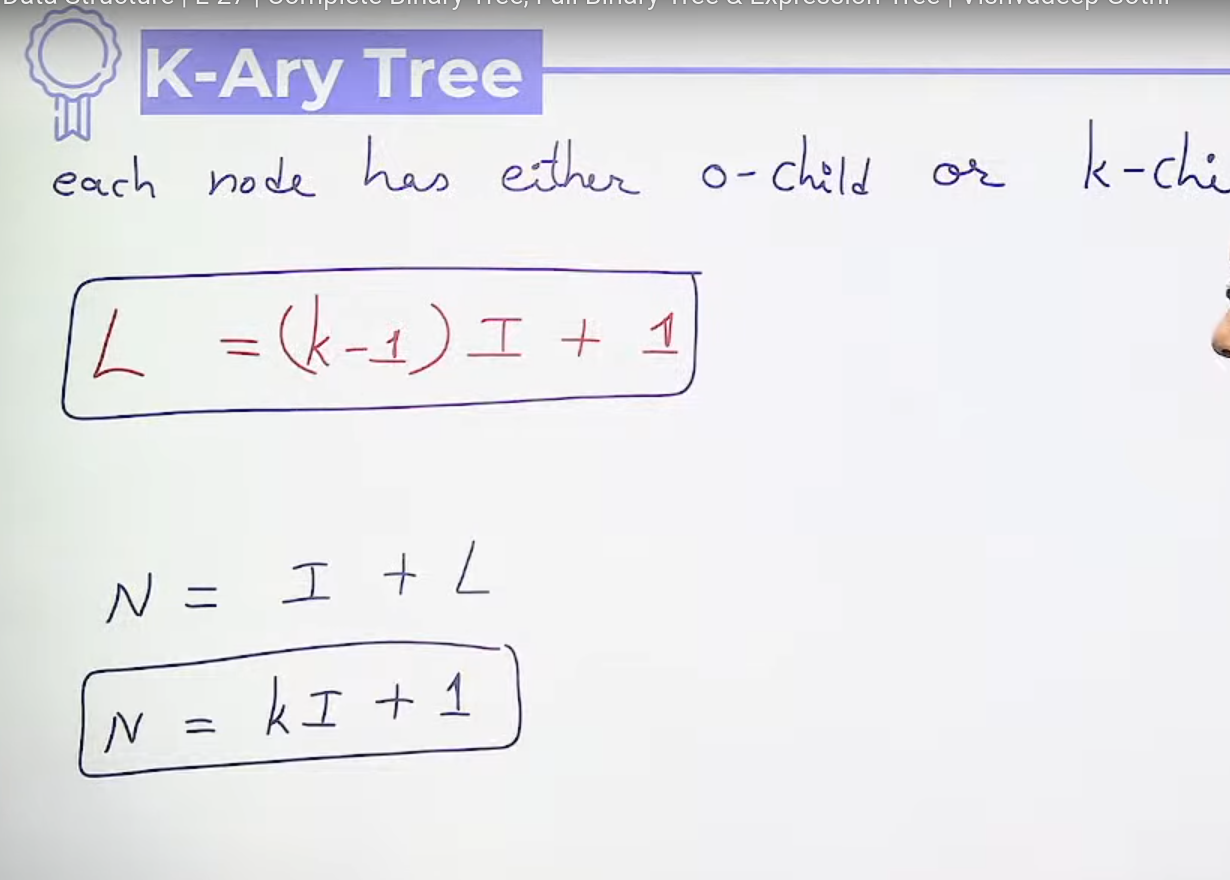 Data Structure | L 27 | Complete Binary Tree, Full Binary Tree & Expression Tree | Vishvadeep Gothi
K-Ary Tree
each node has either 0-child or k-chi
L = (k-1) I + 1
N = I + L
N = kI + 1